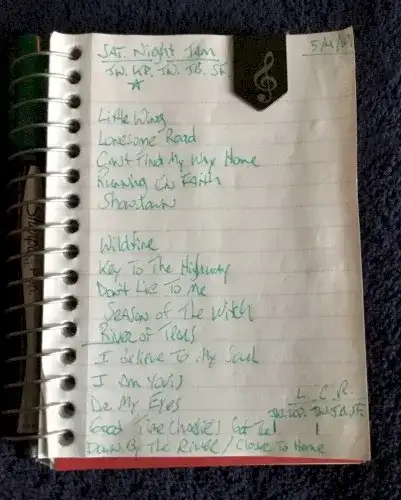 SAT. Night Jam
5/4/
JW. KP. JW. JB. SF
Little Wing
Lonesome Road
Can't Find My Way Home
Running On Faith
Showdown
Wildfire
Key To The Highway
Don't Lie To Me
Season of The Witch
River of Tears
I Believe To My Soul
I Am Yours
De My Eyes
L. C. R.
JW. KP. JW. JB. SF
Good Time Charlie's Got The
Down By The River / Close To Home
Sharpie